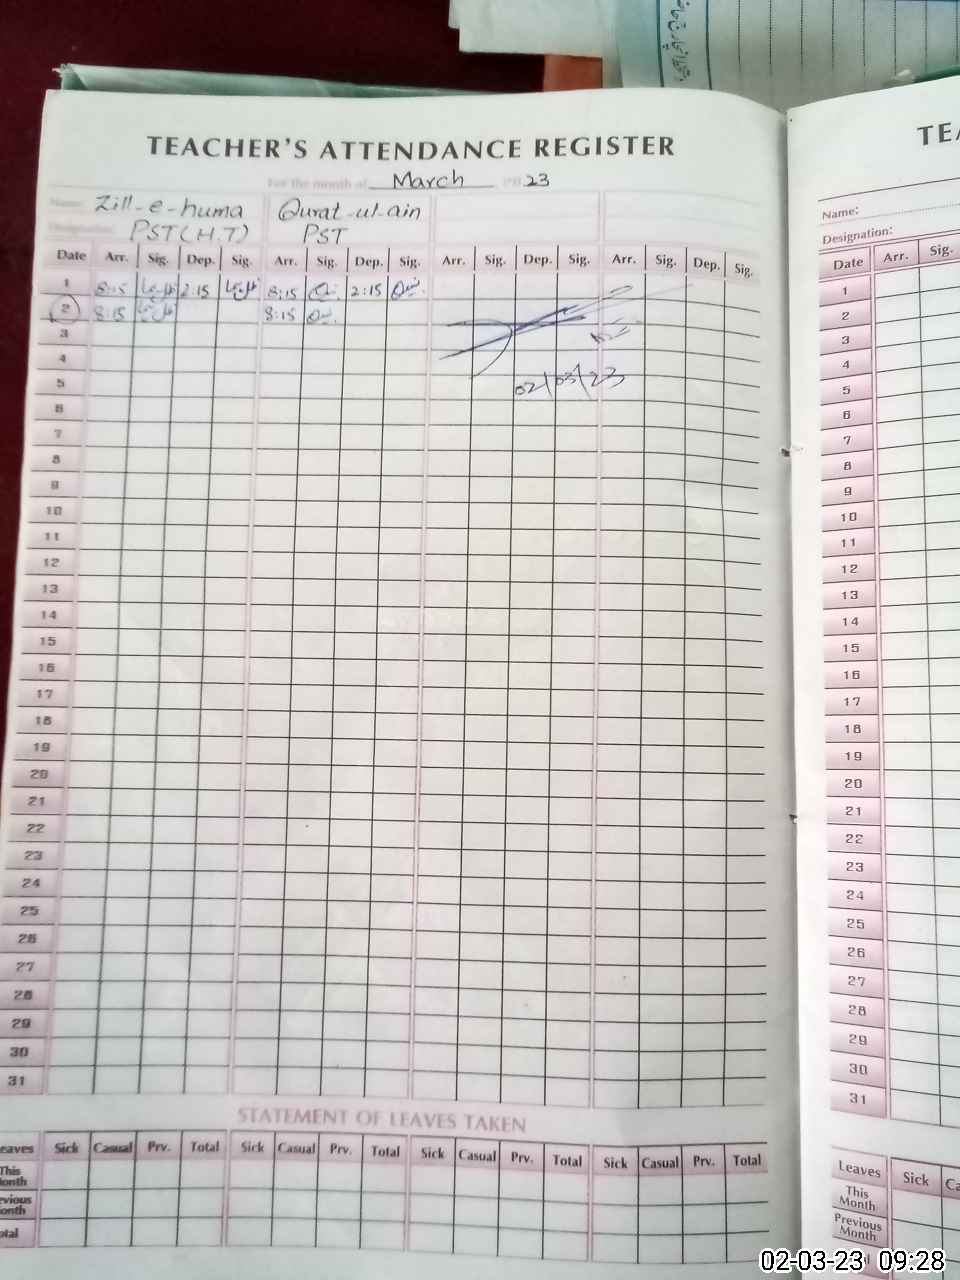 TEACHER'S ATTENDANCE REGISTER
For the month of March 23
Name: Zill-e-huma Qurat-ul-ain
Designation: PST (H.T) PST
Date Arr. Sig. Dep. Sig. Arr. Sig. Dep. Sig. Arr. Sig. Dep. Sig. Arr. Sig. Dep. Sig.
1 8:15 ظل ہما 2:15 ظل ہما 8:15 2:15
2 8:15 ظل ہما 8:15
3
4
5 02/03/23
6
7
8
9
10
11
12
13
14
15
16
17
18
19
20
21
22
23
24
25
26
27
28
29
30
31
STATEMENT OF LEAVES TAKEN
eaves Sick Casual Prv. Total Sick Casual Prv. Total Sick Casual Prv. Total Sick Casual Prv. Total
This
onth
evious
onth
otal
TEA
Name:
Designation:
Date Arr. Sig.
1
2
3
4
5
6
7
8
9
10
11
12
13
14
15
16
17
18
19
20
21
22
23
24
25
26
27
28
29
30
31
Leaves Sick Ca
This
Month
Previous
Month
02-03-23 09:28